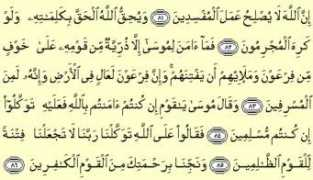 إِنَّ ٱللَّهَ لَا يُصْلِحُ عَمَلَ ٱلْمُفْسِدِينَ ٨١ وَيُحِقُّ ٱللَّهُ ٱلْحَقَّ بِكَلِمَٰتِهِۦ وَلَوْ
كَرِهَ ٱلْمُجْرِمُونَ ٨٢ فَمَآ ءَامَنَ لِمُوسَىٰٓ إِلَّا ذُرِّيَّةٌ مِّن قَوْمِهِۦ عَلَىٰ خَوْفٍ
مِّن فِرْعَوْنَ وَمَلَإِي۟هِمْ أَن يَفْتِنَهُمْ ۚ وَإِنَّ فِرْعَوْنَ لَعَالٍ فِى ٱلْأَرْضِ وَإِنَّهُۥ لَمِنَ
ٱلْمُسْرِفِينَ ٨٣ وَقَالَ مُوسَىٰ يَٰقَوْمِ إِن كُنتُمْ ءَامَنتُم بِٱللَّهِ فَعَلَيْهِ تَوَكَّلُوٓا۟
إِن كُنتُم مُّسْلِمِينَ ٨٤ فَقَالُوا۟ عَلَى ٱللَّهِ تَوَكَّلْنَا رَبَّنَا لَا تَجْعَلْنَا فِتْنَةً
لِّلْقَوْمِ ٱلظَّٰلِمِينَ ٨٥ وَنَجِّنَا بِرَحْمَتِكَ مِنَ ٱلْقَوْمِ ٱلْكَٰفِرِينَ ٨٦